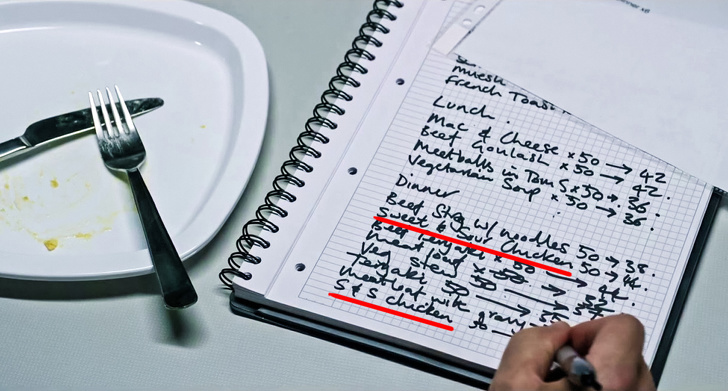 muesli
French Toast
Lunch.
Mac & Cheese x 50 → 42
Beef Goulash x 50 → 42.
Meatballs in Tom S x 50 → 36
Vegetarian Soup x 50 → 36.
Dinner
Beef Strog w/ noodles 50 → 38.
Sweet & Sour Chicken 50 → 44.
Beef Teriyaki x 50 → 44.
meatloaf x 50 →
Veg stew 50 →
Teriyaki 50 → 35
meatloaf with gravy
S & S chicken 50